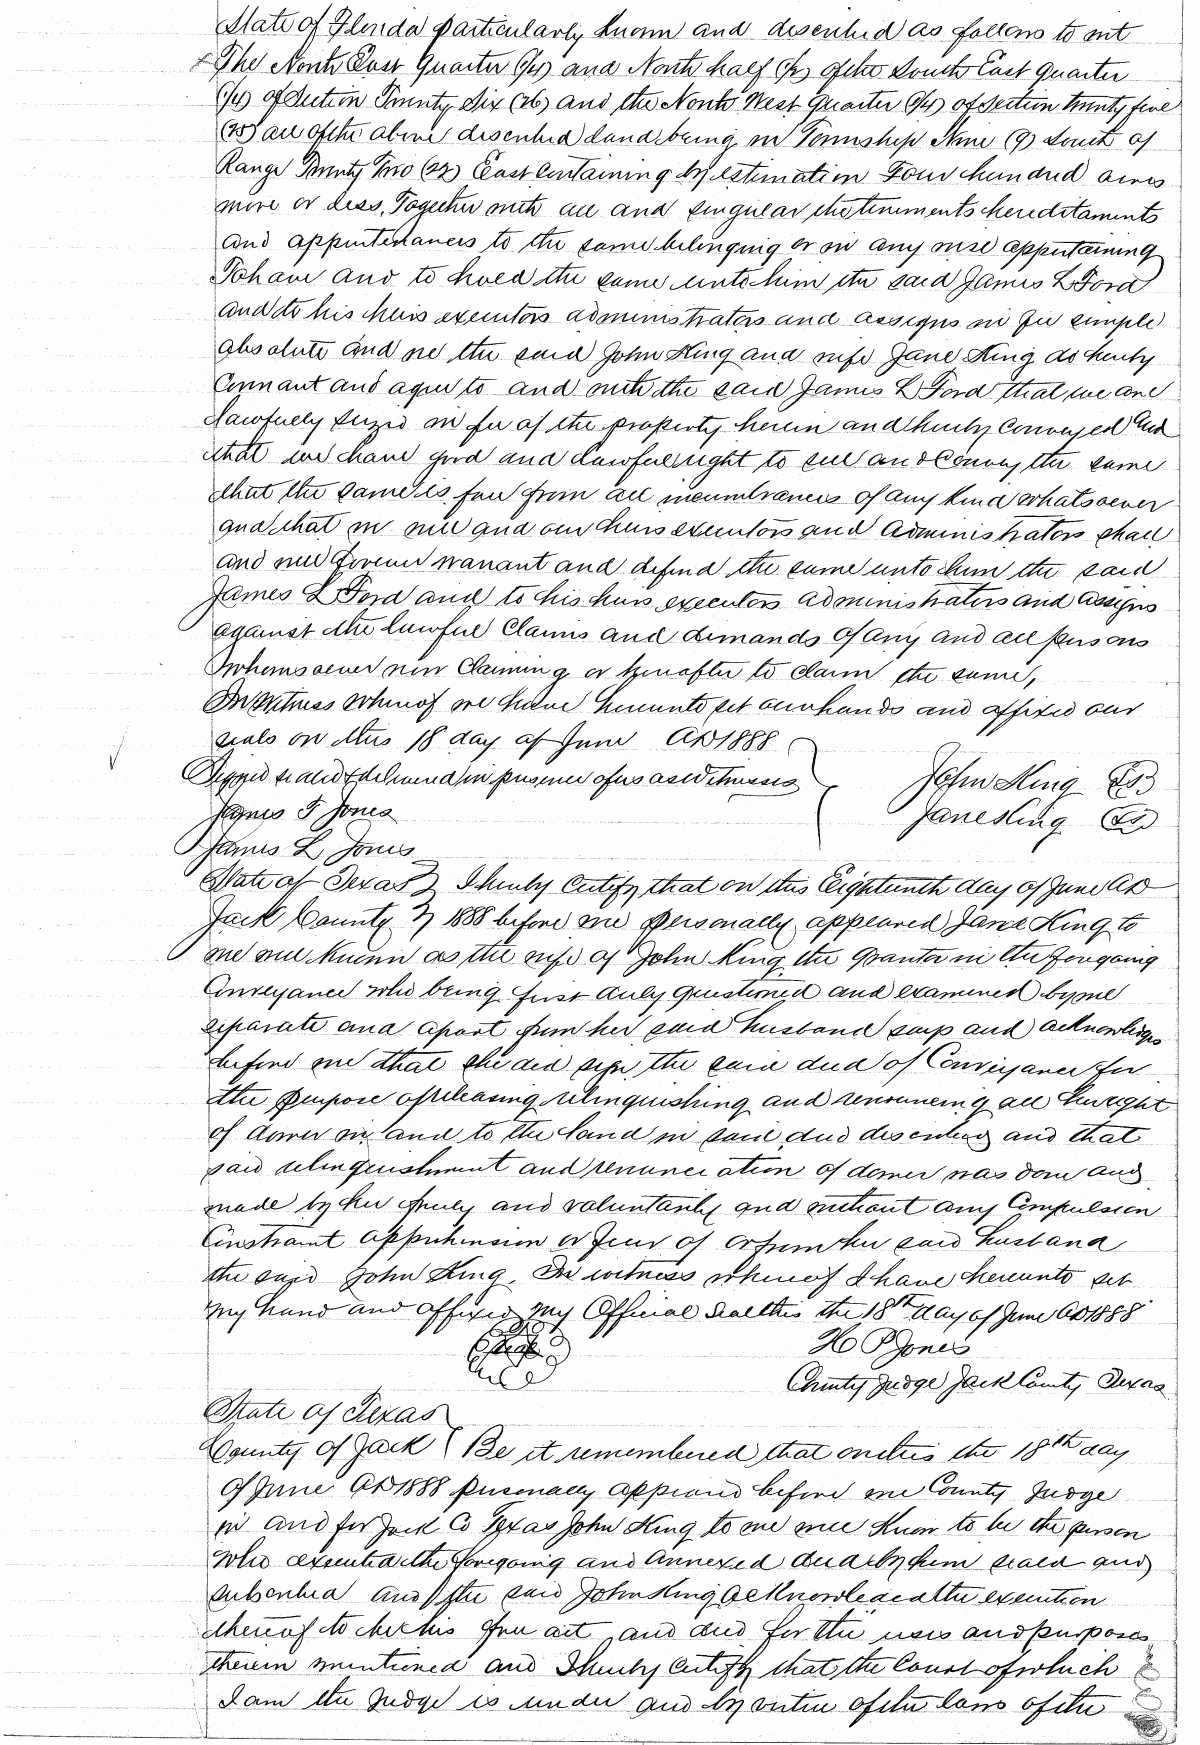 State of Florida particularly known and described as follows to wit
The North East Quarter (1/4) and North half (1/2) of the South East Quarter
(1/4) of Section Twenty Six (26) and the North West Quarter (1/4) of Section Twenty five
(25) all of the above described land being in Township Nine (9) South of
Range Twenty Two (22) East containing by estimation Four hundred acres
more or less, Together with all and singular the tenements hereditaments
and appurtenances to the same belonging or in any wise appertaining
To have and to hold the same unto him the said James L Ford
and to his heirs executors administrators and assigns in fee simple
absolute and we the said John King and wife Jane King do hereby
Covenant and agree to and with the said James L Ford that we are
lawfully seized in fee of the property herein and hereby conveyed And
that we have good and lawful right to sell and Convey the same
that the same is free from all incumbrances of any kind whatsoever
and that we will and our heirs executors and administrators shall
and will forever warrant and defend the same unto him the said
James L Ford and to his heirs executors administrators and assigns
against the lawful Claims and demands of any and all persons
whomsoever now claiming or hereafter to claim the same,
In witness whereof we have hereunto set our hands and affixed our
seals on this 18 day of June AD 1888
Signed sealed & delivered in presence of us as Witnesses
John King (LS)
James F Jones
Jane King (LS)
James L Jones
State of Texas } I hereby Certify that on this Eighteenth day of June AD
Jack County } 1888 before me personally appeared Jane King to
me well known as the wife of John King the grantor in the foregoing
Conveyance who being first duly questioned and examined by me
separate and apart from her said husband says and acknowledges
before me that she did sign the said deed of Conveyance for
the purpose of releasing relinquishing and renouncing all her right
of dower in and to the land in said deed described and that
said relinquishment and renunciation of dower was done and
made by her freely and voluntarily and without any Compulsion
Constraint apprehension or fear of or from her said husband
the said John King. In witness whereof I have hereunto set
my hand and affixed my Official Seal this the 18th day of June AD 1888
H P Jones
County Judge Jack County Texas
State of Texas
County of Jack } Be it remembered that on this the 18th day
of June AD 1888 personally appeared before me County Judge
in and for Jack Co Texas John King to me well know to be the person
who executed the foregoing and annexed deed by him seald and
subscribed and the said John King acknowledged the execution
thereof to be his free act and deed for the uses and purposes
therein mentioned and I hereby certify that the Court of which
I am the Judge is under and by virtue of the laws of the